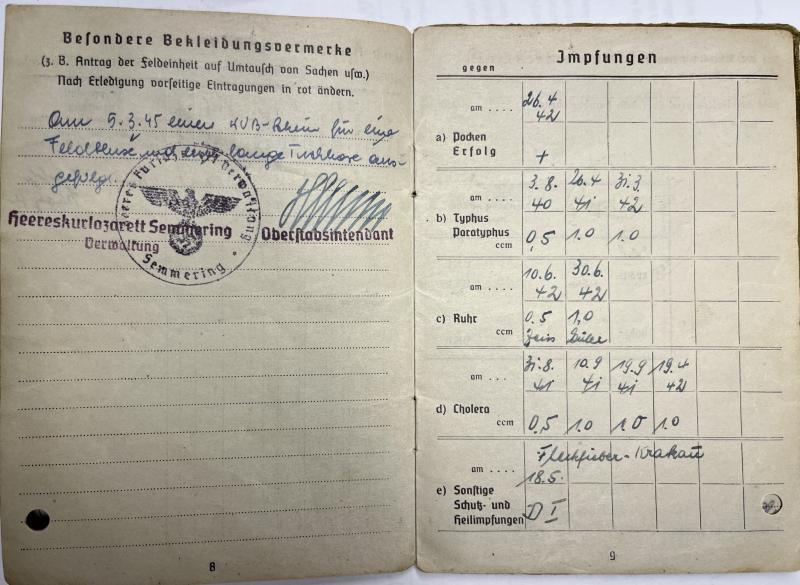 Besondere Bekleidungsvermerke
(z. B. Antrag der Feldeinheit auf Umtausch von Sachen usw.)
Nach Erledigung vorseitige Eintragungen in rot ändern.
Am 5.3.45 einen für eine
Feldbluse und lange Tuchhose aus-
gefolgt.
Heereskurlazarett Semmering
Verwaltung
Oberstabsintendant
Semmering
8
Impfungen
gegen
am .... 26.4 42
a) Pocken
Erfolg +
am .... 3.8. 40 26.4 41 31.3. 42
b) Typhus
Paratyphus
ccm 0,5 1.0 1.0
am .... 10.6. 42 30.6. 42
c) Ruhr 0.5 1,0
ccm
am ... 31.8. 41 10.9 41 19.9 41 19.4 42
d) Cholera
ccm 0,5 1.0 1.0 1.0
Fleckfieber-Krakau
am .... 18.5.
e) Sonstige
Schutz- und
Heilimpfungen D I
9